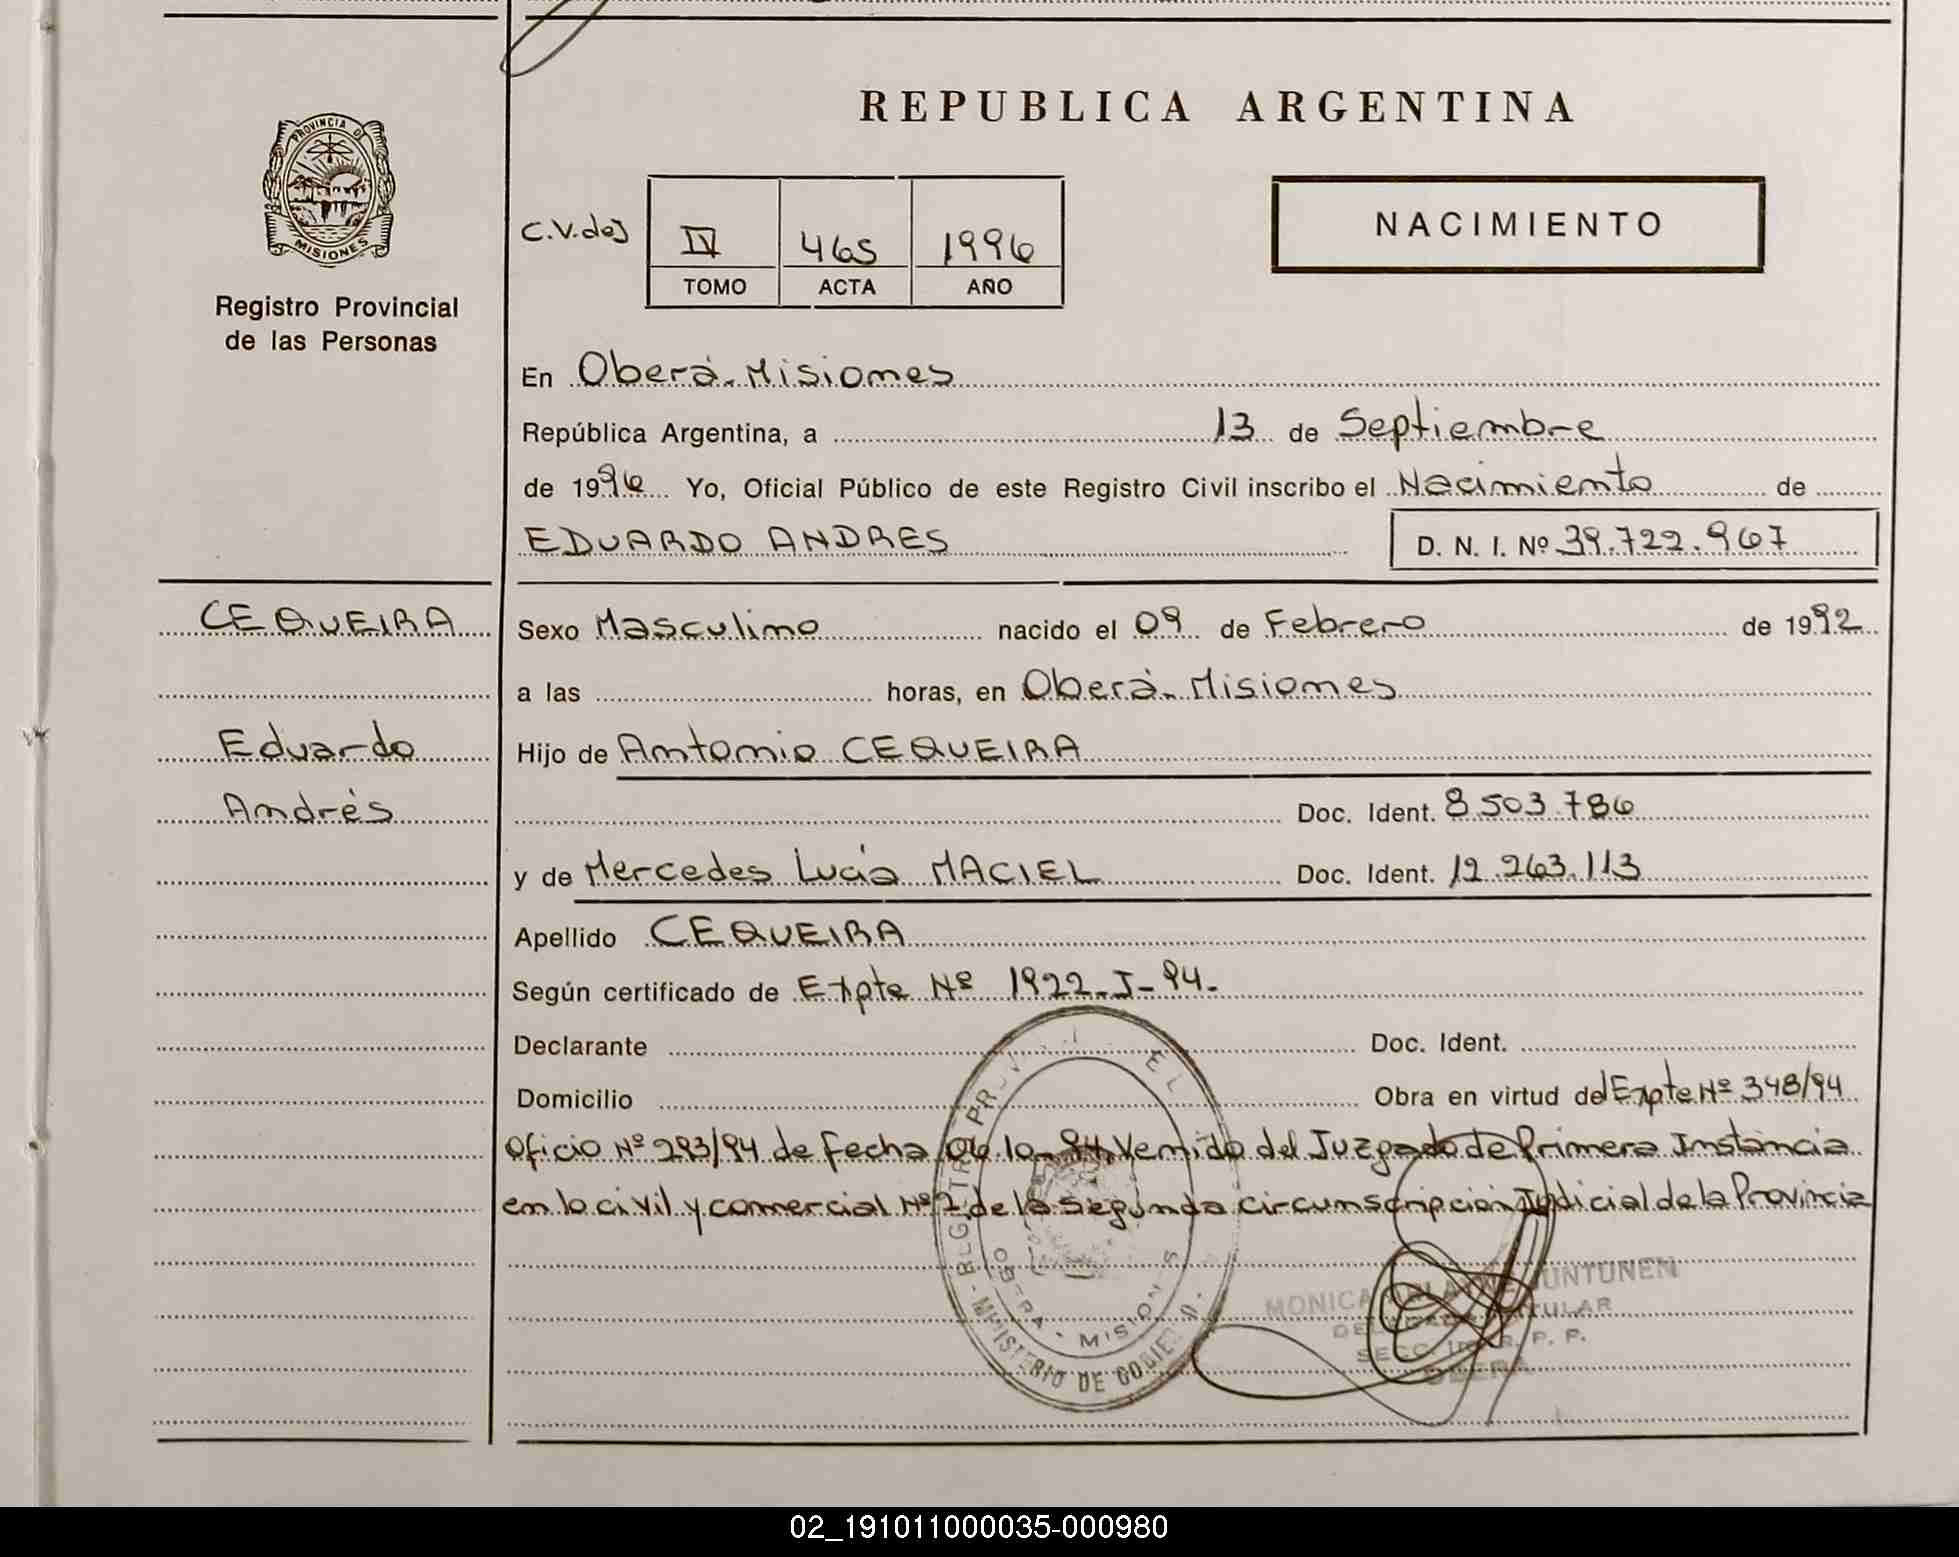 PROVINCIA DE
MISIONES
Registro Provincial
de las Personas
REPUBLICA ARGENTINA
C.V.deJ
IV 465 1996
TOMO ACTA AÑO
NACIMIENTO
En Oberá-Misiones
República Argentina, a 13 de Septiembre
de 1996 Yo, Oficial Público de este Registro Civil inscribo el Nacimiento de
EDUARDO ANDRES D. N. I. Nº 39.722.967
CEQUEIRA
Sexo Masculino nacido el 09 de Febrero de 1992
a las horas, en Oberá-Misiones
Eduardo
Hijo de Antonio CEQUEIRA
Andrés
Doc. Ident. 8.503.786
y de Mercedes Lucía MACIEL Doc. Ident. 12.263.113
Apellido CEQUEIRA
Según certificado de Expte Nº 1922-J-94-
Declarante Doc. Ident.
Domicilio Obra en virtud del Expte Nº 348/94
Oficio Nº 293/94 de fecha 06-10-94, Venido del Juzgado de Primera Instancia
en lo civil y comercial Nº 2, de la segunda circunscripción Judicial de la Provincia
MONICA UNTUNEN
TITULAR
SECC. R. P. P.
OBERA
OBERA - MISIONES
MINISTERIO DE GOBIERNO
02_191011000035-000980